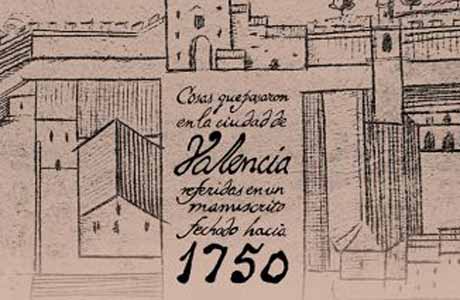 Cosas que pasaron
en la ciudad de
Valencia
referidas en un
manuscrito
fechado hacia
1750